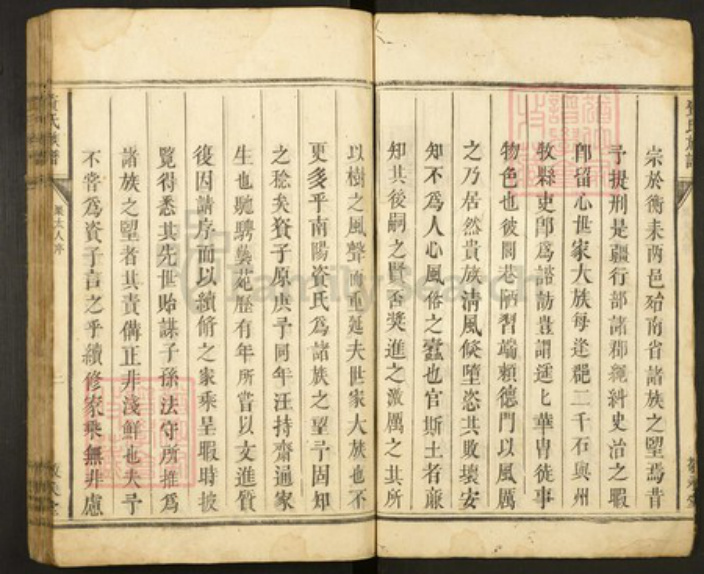 宗於衡耒兩邑殆南省諸族之望焉昔
予提刑是疆行部諸郡糾史治之暇
卽留心世家大族每逢郡二千石與州
牧縣吏卽爲諮訪豈謂近華胄徒事
物色也彼閭巷陋習端賴德門以風厲
之乃居然貴族清風倐墮恣其敗壞安
知不爲人心風俗之蠹也官斯土者廉
知其後嗣之賢否奬進之激厲之其所
以樹之風聲而重延夫世家大族也不
更多乎南陽資氏爲諸族之望予固知
之稔矣資子原庚予同年汪持齋過家
生也馳騁藝苑歷有年所嘗以文進質
復因請序而以續脩之家乘呈暇時披
覽得悉其先世貽謀子孫法守所推爲
諸族之望者其責備正非淺鮮也夫予
不嘗爲資子言之乎續修家乘無非慮
資氏族譜
FamilySearch